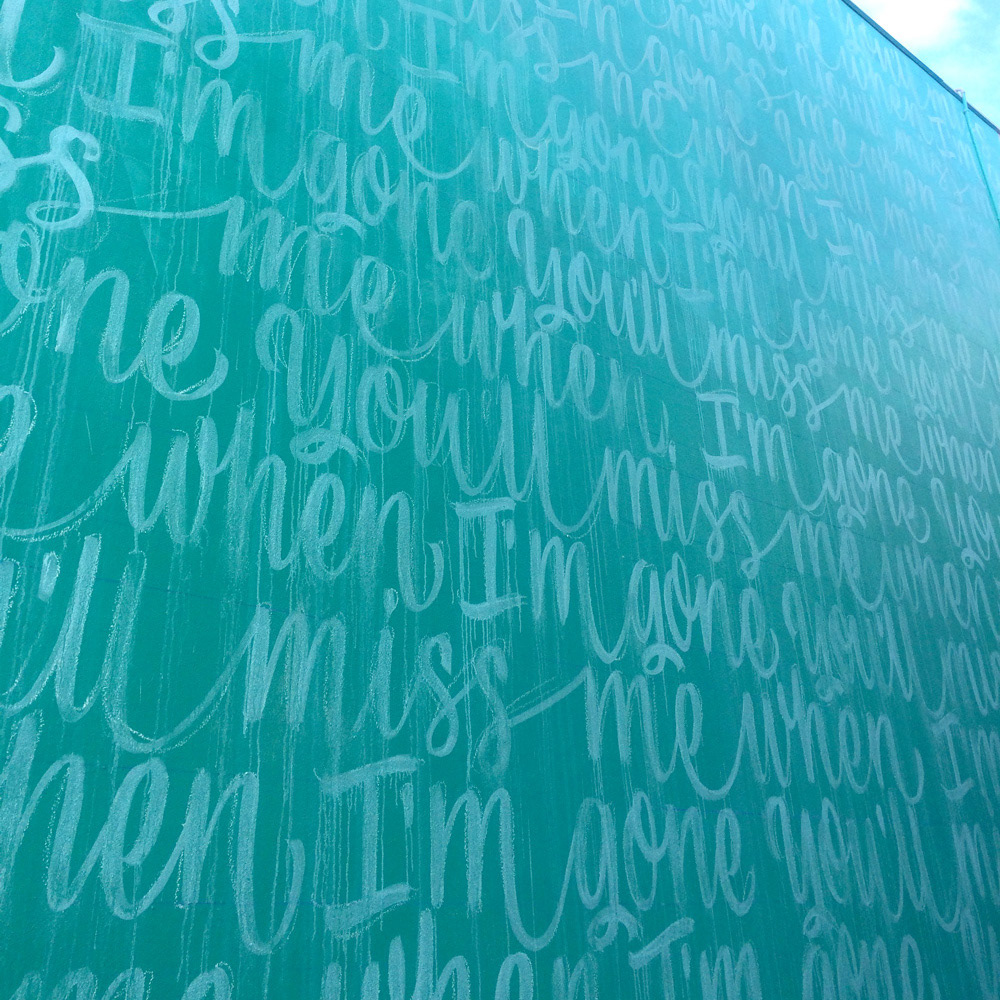 gone you'll miss
miss me when I'm
I'm gone you'll miss me
ss me when I'm gone you'll
I'm gone you'll miss me when
ss me when I'm gone you
one you'll miss me when
when I'm gone you'll mi
'll miss me when I'm
hen I'm gone you'll m
me when I'm gone